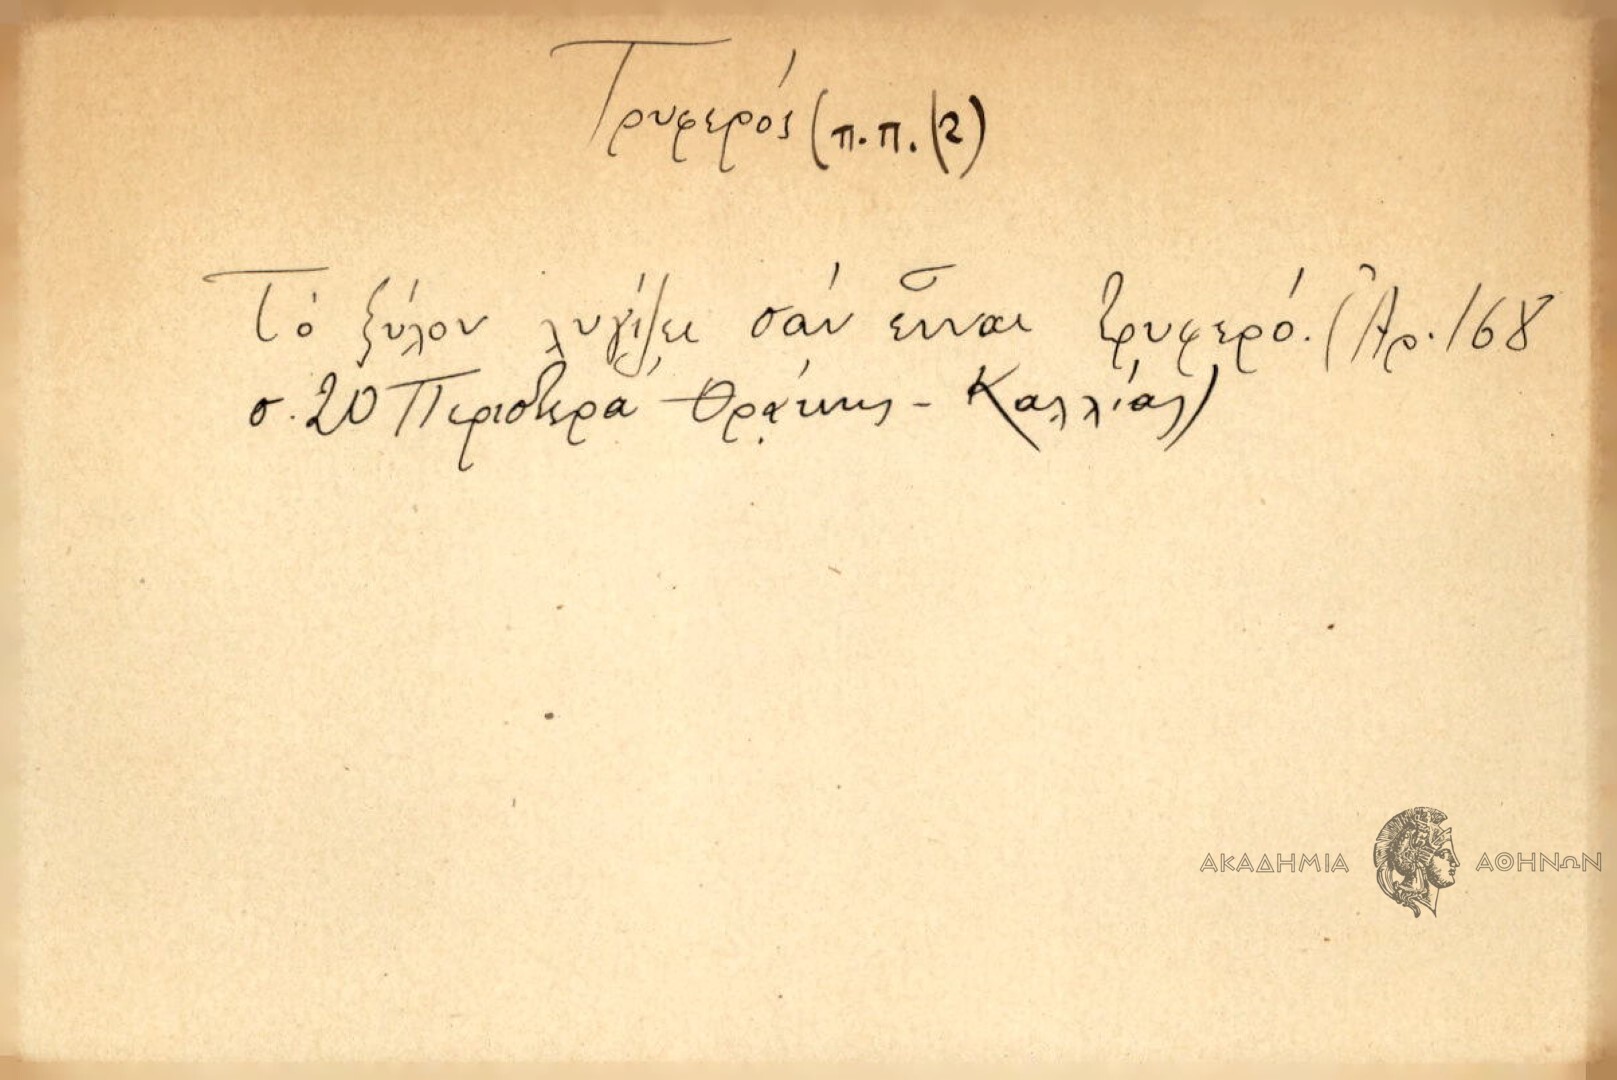 Τρυφερός (π.π. 12)
Τό ξύλον λυγίζει σάν εἶναι τρυφερό. (Ἀρ. 168
σ. 20 Περιστερά Θράκης - Καλλίας)
ΑΚΑΔΗΜΙΑ ΑΘΗΝΩΝ